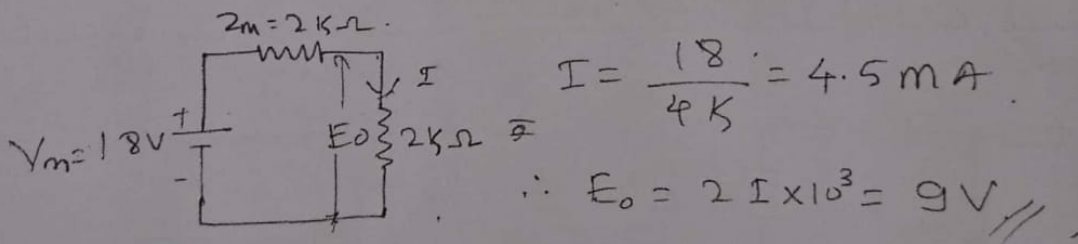 Zm = 2KΩ.
I
Vm = 18V
+
-
E0
2KΩ
I = 18/4K = 4.5mA.
∴ E₀ = 2I×10³ = 9V //